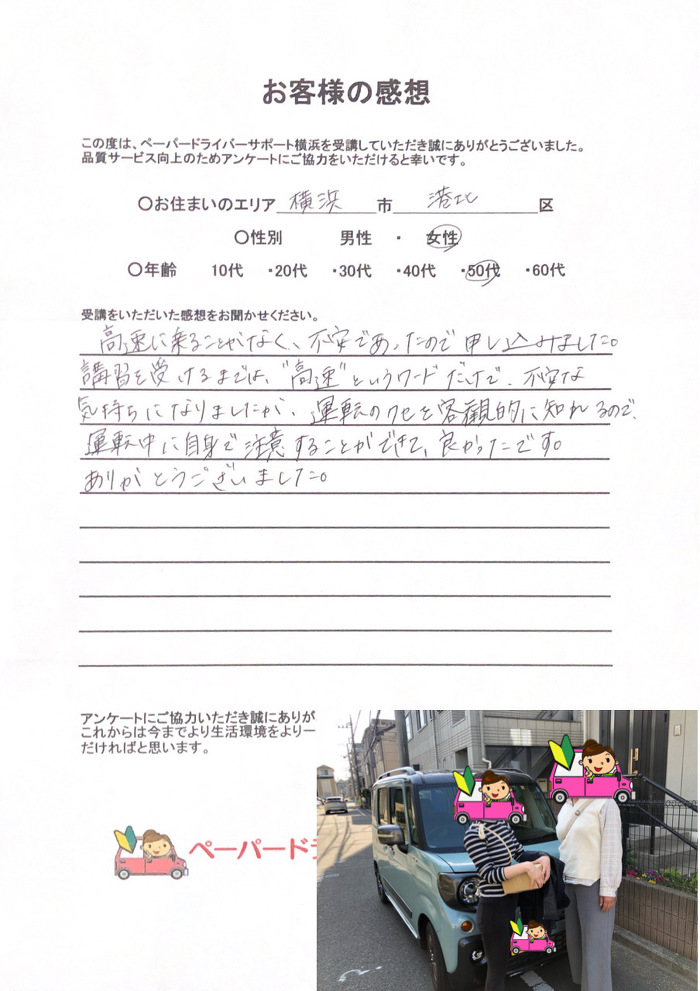 お客様の感想
この度は、ペーパードライバーサポート横浜を受講していただき誠にありがとうございました。
品質サービス向上のためアンケートにご協力をいただけると幸いです。
〇お住まいのエリア 横浜 市 港北 区
〇性別 男性 ・ 女性
〇年齢 10代 ・20代 ・30代 ・40代 ・50代 ・60代
受講をいただいた感想をお聞かせください。
高速に乗ることがなく、不安であったので申し込みました。
講習を受けるまでは、"高速"というワードだけで、不安な
気持ちになりましたが、運転のクセを客観的に知れるので、
運転中に自身で注意することができて、良かったです。
ありがとうございました。
アンケートにご協力いただき誠にありが
これからは今までより生活環境をより一
だければと思います。
ペーパードラ